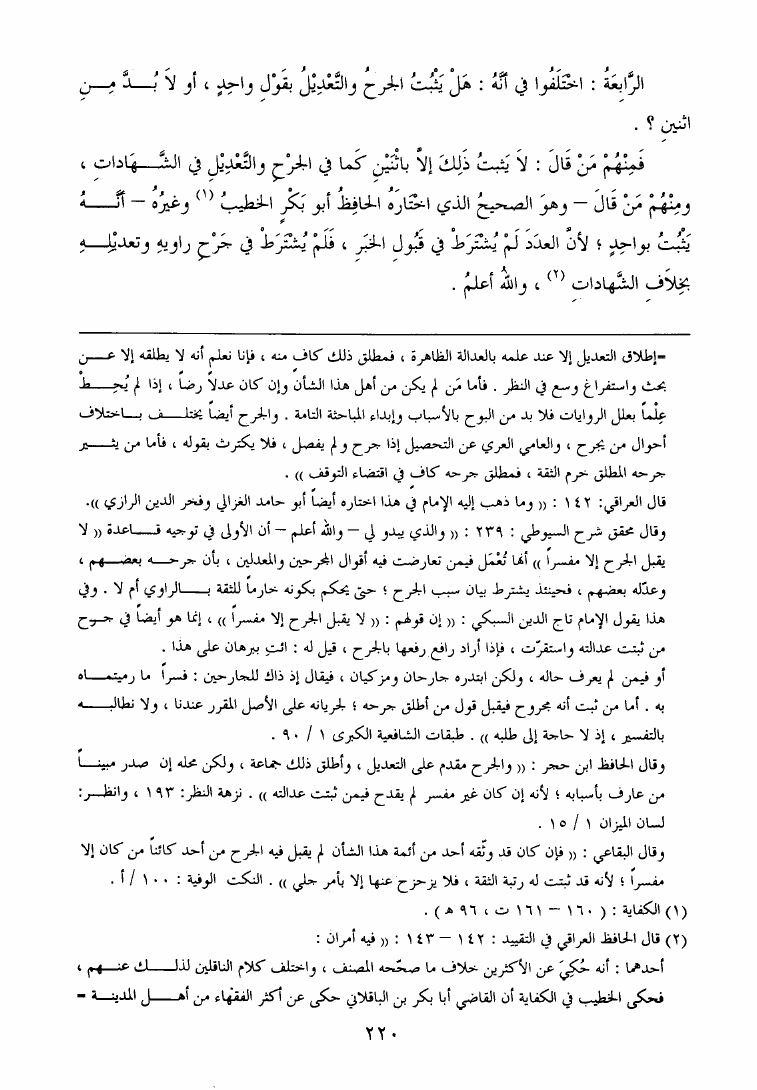 الرَّابِعَةُ : اخْتَلَفُوا في أنَّهُ : هَلْ يَثْبُتُ الجرحُ والتَّعْدِيْلُ بقَوْلِ واحِدٍ ، أو لاَ بُـــدَّ مِـــنِ
اثنينِ ؟ .
فَمِنْهُمْ مَنْ قَالَ : لاَ يَثبتُ ذَلِكَ إلاَّ باثْنَيْنِ كَما في الجَرْحِ والتَّعْدِيْلِ في الشَّـــهَادات ،
ومِنْهُمْ مَنْ قَالَ – وهوَ الصحيحُ الذي اخْتَارَهُ الحَافِظُ أبو بَكْرٍ الخطيبُ (١) وغيرُهُ – أنَّـــهُ
يَثْبُتُ بواحِدٍ ؛ لأنَّ العدَدَ لَمْ يُشْتَرَطْ في قَبُولِ الخبَرِ ، فَلَمْ يُشْتَرَطْ في جَرْحِ راويهِ وتعديلِـــهِ
بخِلاَفِ الشَّهاداتِ (٢) ، واللهُ أعلمُ .
=إطلاق التعديل إلا عند علمه بالعدالة الظاهرة ، فمطلق ذلك كاف منه ، فإنا نعلم أنه لا يطلقه إلا عـــن
بحث واستفراغ وسع في النظر . فأما مَن لم يكن من أهل هذا الشأن وإن كان عدلاً رضاً ، إذا لم يُحِـــطْ
عِلْماً بعلل الروايات فلا بد من البوح بالأسباب وإبداء المباحثة التامة . والجرح أيضاً يختلـــف بـــاختلاف
أحوال من يجرح ، والعامي العري عن التحصيل إذا جرح ولم يفصل ، فلا يكترث بقوله ، فأما من يثـــير
جرحه المطلق خرم الثقة ، فمطلق جرحه كافٍ في اقتضاء التوقف )) .
قال العراقي: ١٤٢ : (( وما ذهب إليه الإمام في هذا اختاره أيضاً أبو حامد الغزالي وفخر الدين الرازي )).
وقال محقق شرح السيوطي : ٢٣٩ : (( والذي يبدو لي – والله أعلم – أن الأولى في توجيه قـــاعدة (( لا
يقبل الجرح إلا مفسراً )) أنها تُعْمَل فيمن تعارضت فيه أقوال المجرحين والمعدلين ، بأن جرحـــه بعضـــهم ،
وعدّله بعضهم ، فحينئذ يشترط بيان سبب الجرح ؛ حتى يحكم بكونه خارماً للثقة بـــالراوي أم لا . وفي
هذا يقول الإمام تاج الدين السبكي : (( إن قولهم : (( لا يقبل الجرح إلا مفسراً )) ، إنما هو أيضاً في جـــرح
من ثبتت عدالته واستقرّت ، فإذا أراد رافع رفعها بالجرح ، قيل له : ائتِ ببرهان على هذا .
أو فيمن لم يعرف حاله ، ولكن ابتدره جارحان ومزكيان ، فيقال إذ ذاك للجارحين : فسراً ما رميتمـــاه
به . أما من ثبت أنه مجروح فيقبل قول من أطلق جرحه ؛ لجريانه على الأصل المقرر عندنا ، ولا نطالبـــه
بالتفسير ، إذ لا حاجة إلى طلبه )) . طبقات الشافعية الكبرى ١ / ٩٠ .
وقال الحافظ ابن حجر : (( والجرح مقدم على التعديل ، وأطلق ذلك جماعة ، ولكن محله إن صدر مبينـــاً
من عارف بأسبابه ؛ لأنه إن كان غير مفسر لم يقدح فيمن ثبتت عدالته )) . نزهة النظر: ١٩٣ ، وانظـــر:
لسان الميزان ١ / ١٥ .
وقال البقاعي : (( فإن كان قد وثّقه أحد من أئمة هذا الشأن لم يقبل فيه الجرح من أحد كائناً من كان إلا
مفسراً ؛ لأنه قد ثبتت له رتبة الثقة ، فلا يزحزح عنها إلا بأمر جلي )) . النكت الوفية : ١٠٠ / أ .
(١) الكفاية : ( ١٦٠ – ١٦١ ت ، ٩٦ هـ ) .
(٢) قال الحافظ العراقي في التقييد : ١٤٢ – ١٤٣ : (( فيه أمران :
أحدهما : أنه حُكِيَ عن الأكثرين خلاف ما صحّحه المصنف ، واختلف كلام الناقلين لذلـــك عنـــهم ،
فحكى الخطيب في الكفاية أن القاضي أبا بكر بن الباقلاني حكى عن أكثر الفقهاء من أهـــل المدينـــة =
٢٢٠